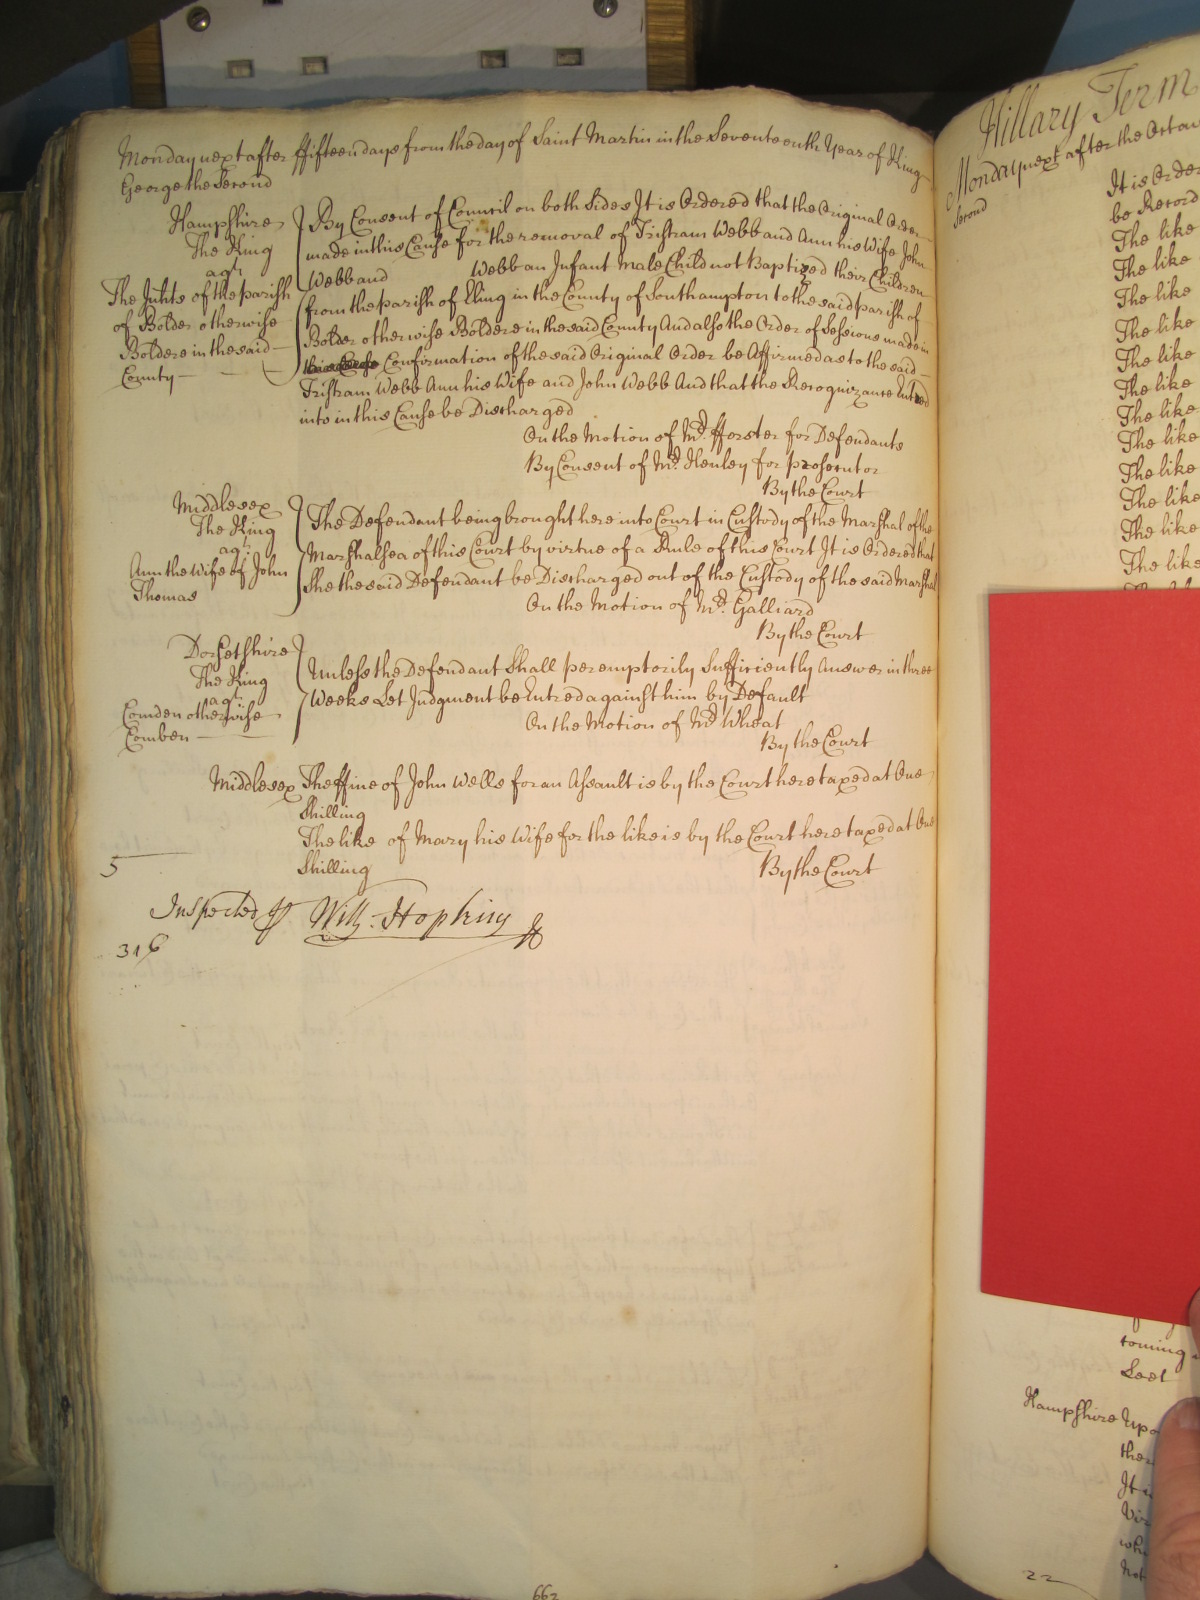 Monday next after ffifteen days from the day of Saint Martin in the Seventeenth Year of King
George the Second
Hampshire
The King
agt
The Inhts of the parish
of Bolder otherwise
Boldere in the said
County
By Consent of Council on both Sides It is Ordered that the Original Order
made in this Cause for the removal of Tristram Webb and Ann his Wife John
Webb and Webb an Infant Male Child not Baptized their Children
from the parish of Eling in the County of Southampton to the said parish of
Bolder otherwise Boldere in the said County And also the Order of Sessions made in
Confirmation of the said Original Order be Affirmed as to the said
Tristram Webb Ann his Wife and John Webb And that the Recognizance Entred
into in this Cause be Discharged
On the Motion of Mr. fforster for Defendants
By Consent of Mr. Henley for prosecutor
By the Court
Middlesex
The King
agt.
Ann the Wife of John
Thomas
The Defendant being brought here into Court in Custody of the Marshal of the
Marshalsea of this Court by virtue of a Rule of this Court It is Ordered that
She the said Defendant be Discharged out of the Custody of the said Marshal
On the Motion of Mr. Galliard
By the Court
Dorsetshire
The King
agt.
Comden otherwise
Comben
Unless the Defendant Shall peremptorily Sufficiently Answer in three
Weeks Let Judgment be Entred against him by Default
On the Motion of Mr Wheat
By the Court
Middlesex The ffine of John Wells for an Assault is by the Court here taxed at One
Shilling
The like of Mary his Wife for the like is by the Court here taxed at One
Shilling
By the Court
5
Inspected Willm. Hopkins
316
662
Hillary Term
Monday next after the Octave
Second
It is Order
be Record
The like
The like
The like
The like
The like
The like
The like
The like
The like
The like
The like
The like
coming
Leet
Hampshire Upo
the
It is
Vir
whi
not
22